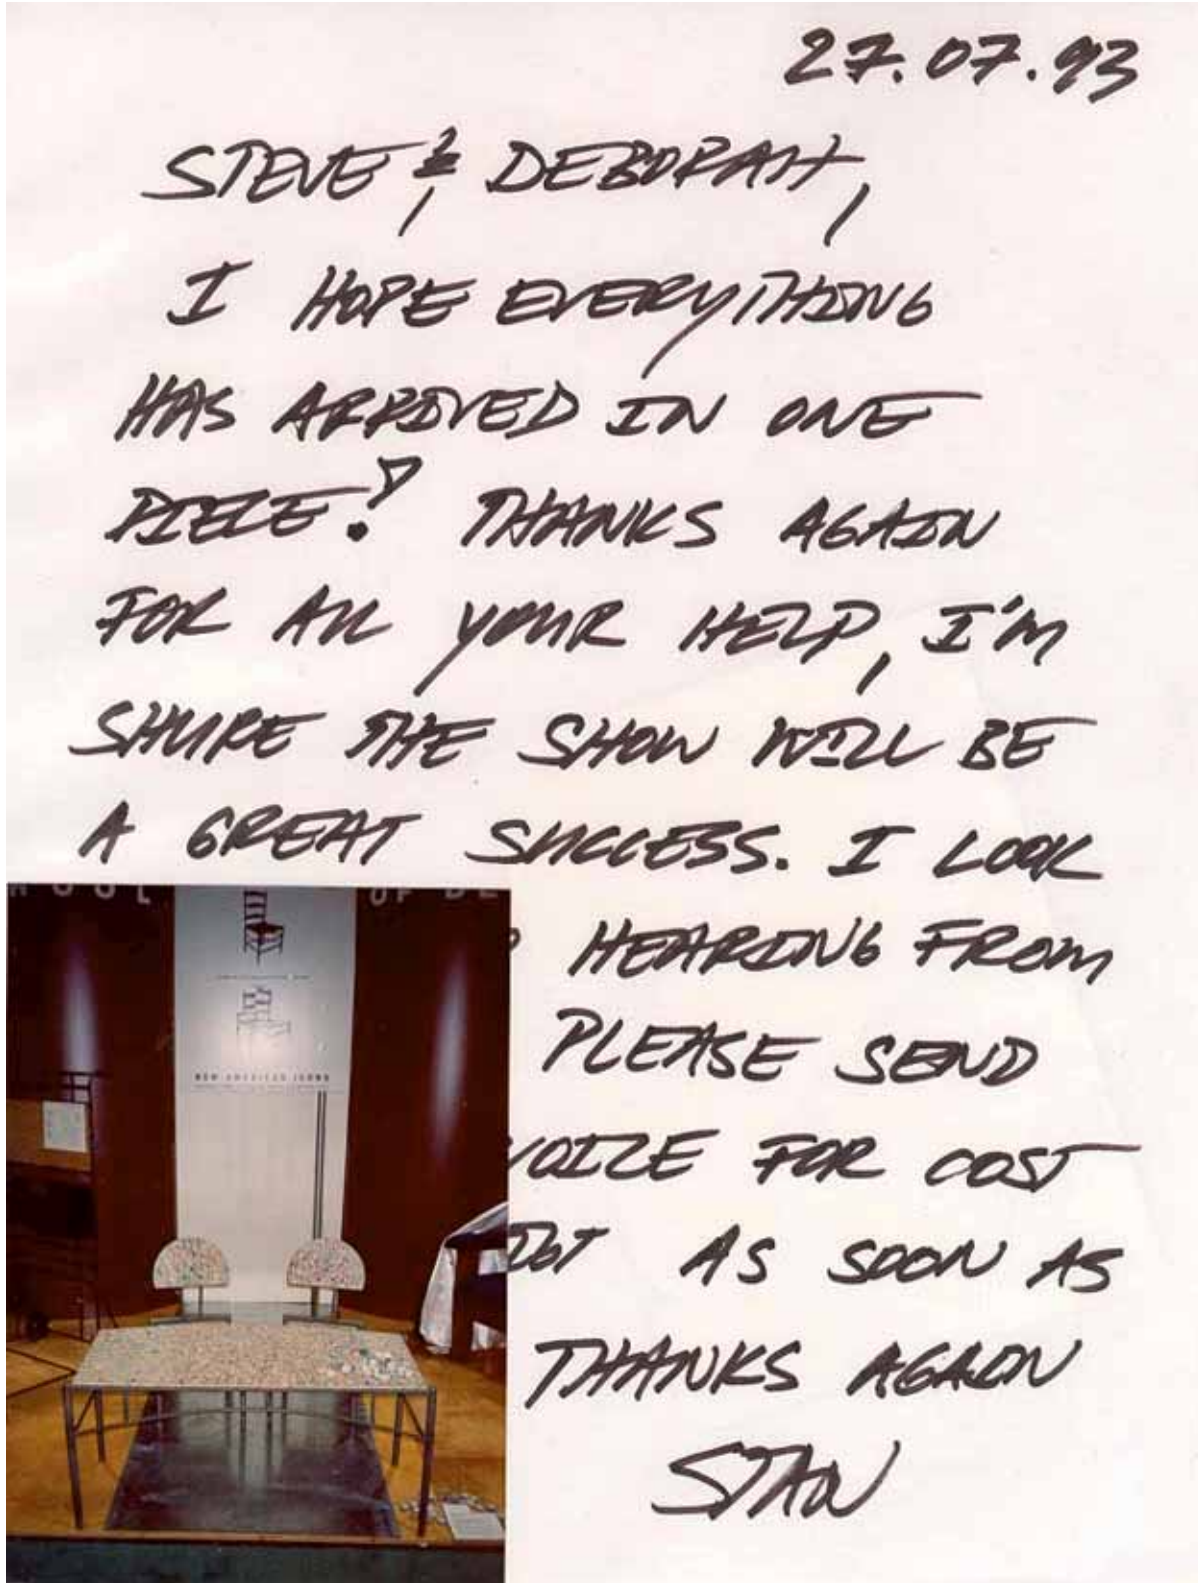 27.07.93
STEVE & DEBORAH,
I HOPE EVERYTHING
HAS ARRIVED IN ONE
PIECE! THANKS AGAIN
FOR ALL YOUR HELP, I'M
SHURE THE SHOW WILL BE
A GREAT SUCCESS. I LOOK
HEARING FROM
PLEASE SEND
VOICE FOR COST
AS SOON AS
THANKS AGAIN
STAN
HOOL OF DE
NEW AMERICAN ICONS